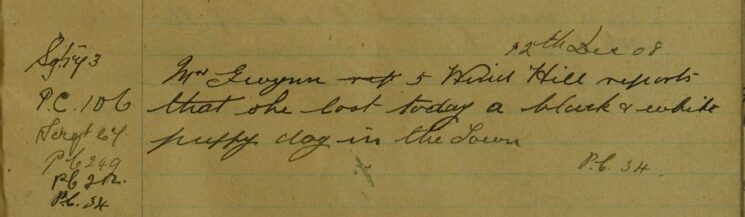 22th Dec 08
Mrs Gwynn rep 5 Wind Hill reports
that she lost today a black & white
puppy dog in the Town
P.C. 34
P.C. 106
Sergt 24
PC 249
PC 212
P.C. 34